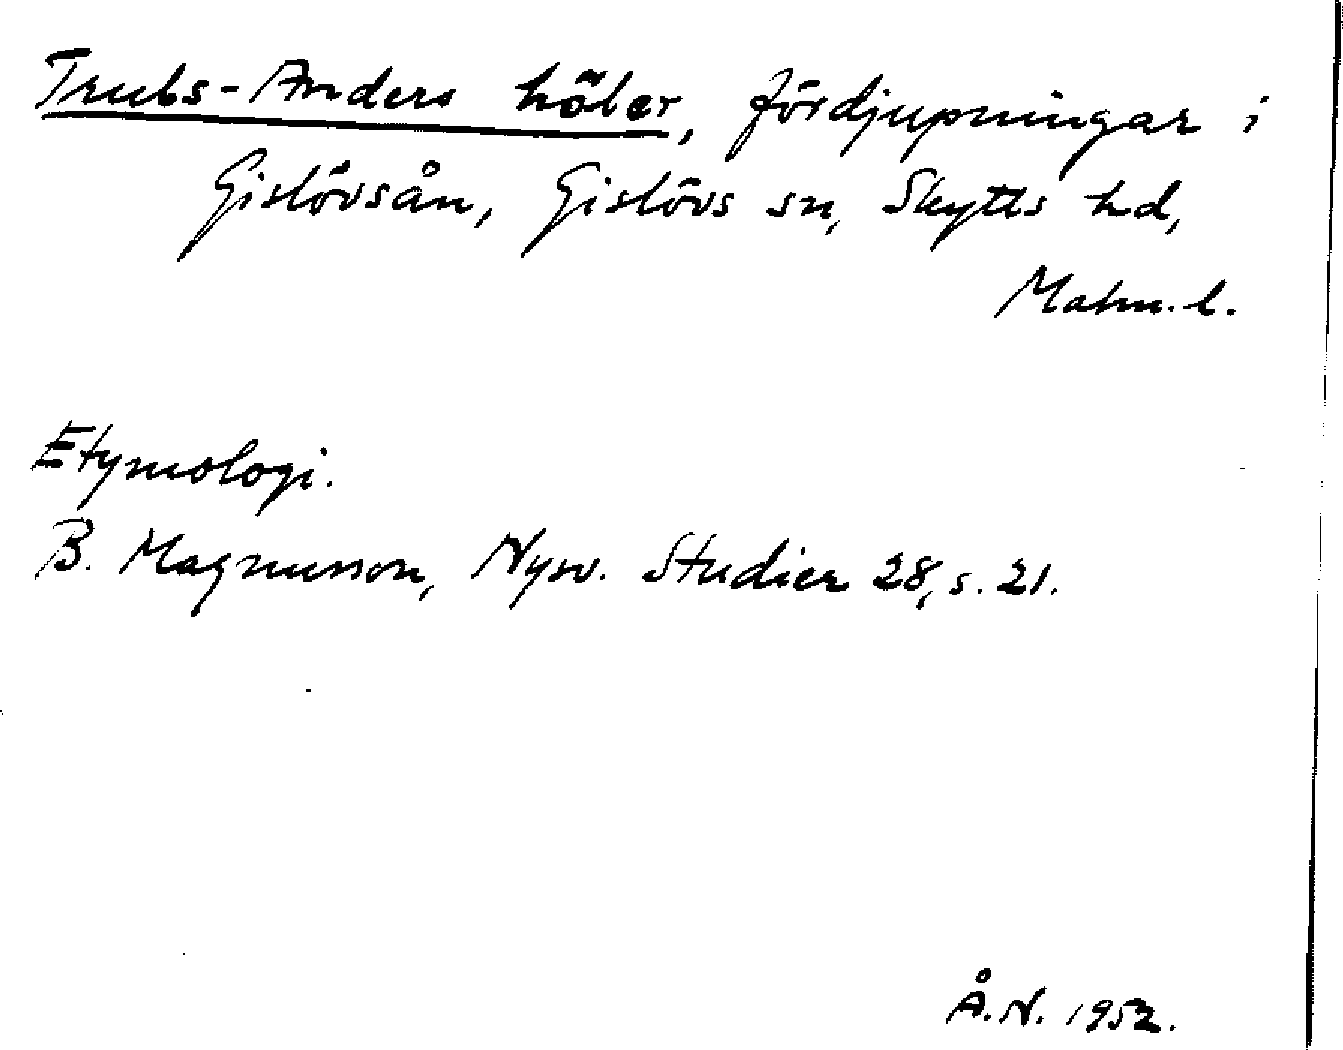 Truls-Anders höler, fördjupningar i
Gislövsån, Gislövs sn, Skytts hd,
Malm. l.
Etymologi.
B. Magnusson, Nysv. Studier 28, s. 21.
Å.N. 1952.